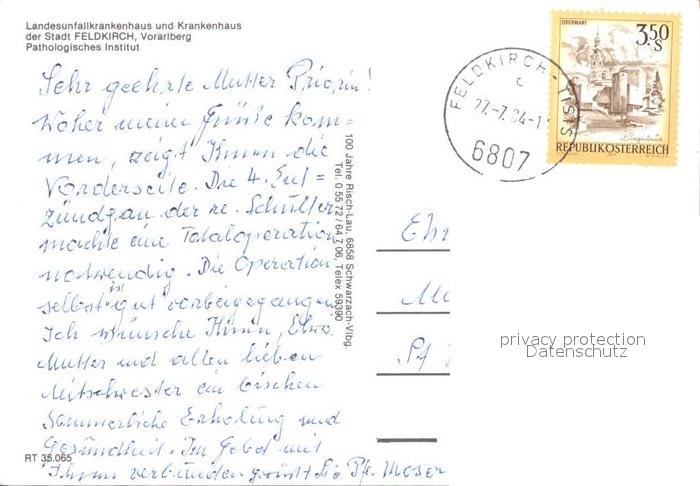 Landesunfallkrankenhaus und Krankenhaus
der Stadt FELDKIRCH, Vorarlberg
Pathologisches Institut
Sehr geehrte Mutter Priorin!
Woher meine Grüße kom=
men, zeigt Ihnen die
Vorderseite. Die 4. Ent=
zündg an der re. Schulter
machte eine Totaloperation
notwendig. Die Operation
selbst ist gut vorbeigegangen.
Ich wünsche Ihnen, Ehrw.
Mutter und allen lieben
Mitschwester ein bischen
Sommerliche Erholung und
Gesundheit. Im Gebet mit
Ihnen verbunden grüßt Sie Pfr. Moser
RT 35.065
100 Jahre Risch-Lau, 6858 Schwarzach-Vlbg.
Tel. 0 55 72 / 64 7 06, Telex 59390
FELDKIRCH-TISIS
c
27.-7.84-1
6807
OBERWART
3.50
S
Burgenland
REPUBLIK ÖSTERREICH
Ehr
Mu
privacy protection
Datenschutz